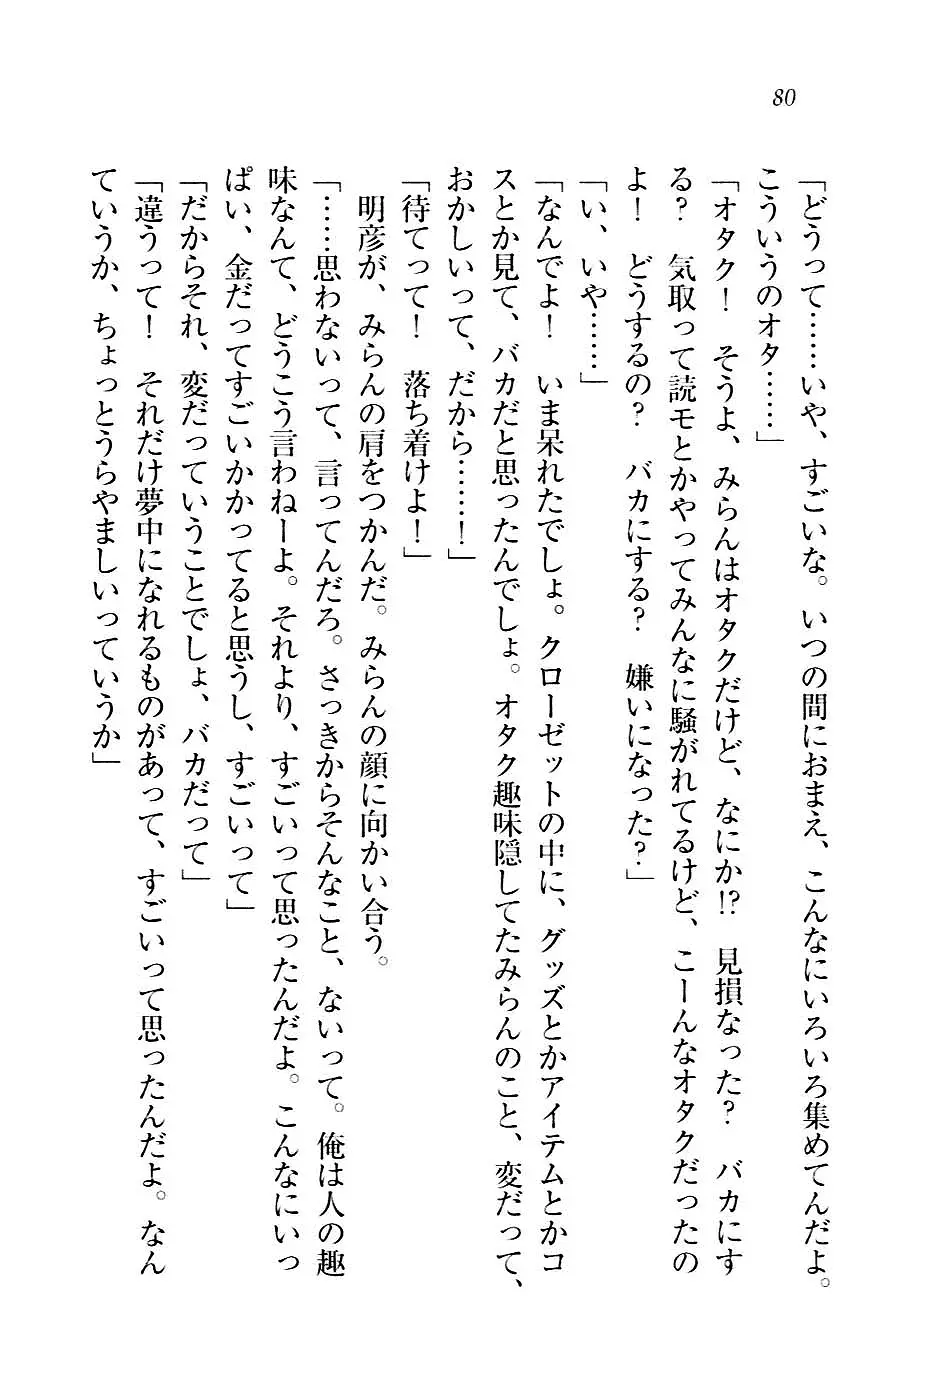 80
「どうって……いや、すごいな。いつの間におまえ、こんなにいろいろ集めてんだよ。
こういうのオタ……」
「オタク！　そうよ、みらんはオタクだけど、なにか!?　見損なった？　バカにす
る？　気取って読モとかやってみんなに騒がれてるけど、こーんなオタクだったの
よ！　どうするの？　バカにする？　嫌いになった？」
「い、いや……」
「なんでよ！　いま呆れたでしょ。クローゼットの中に、グッズとかアイテムとかコ
スとか見て、バカだと思ったんでしょ。オタク趣味隠してたみらんのこと、変だって、
おかしいって、だから……！」
「待てって！　落ち着けよ！」
　明彦が、みらんの肩をつかんだ。みらんの顔に向かい合う。
「……思わないって、言ってんだろ。さっきからそんなこと、ないって。俺は人の趣
味なんて、どうこう言わねーよ。それより、すごいって思ったんだよ。こんなにいっ
ぱい、金だってすごいかかってると思うし、すごいって」
「だからそれ、変だっていうことでしょ、バカだって」
「違うって！　それだけ夢中になれるものがあって、すごいって思ったんだよ。なん
ていうか、ちょっとうらやましいっていうか」